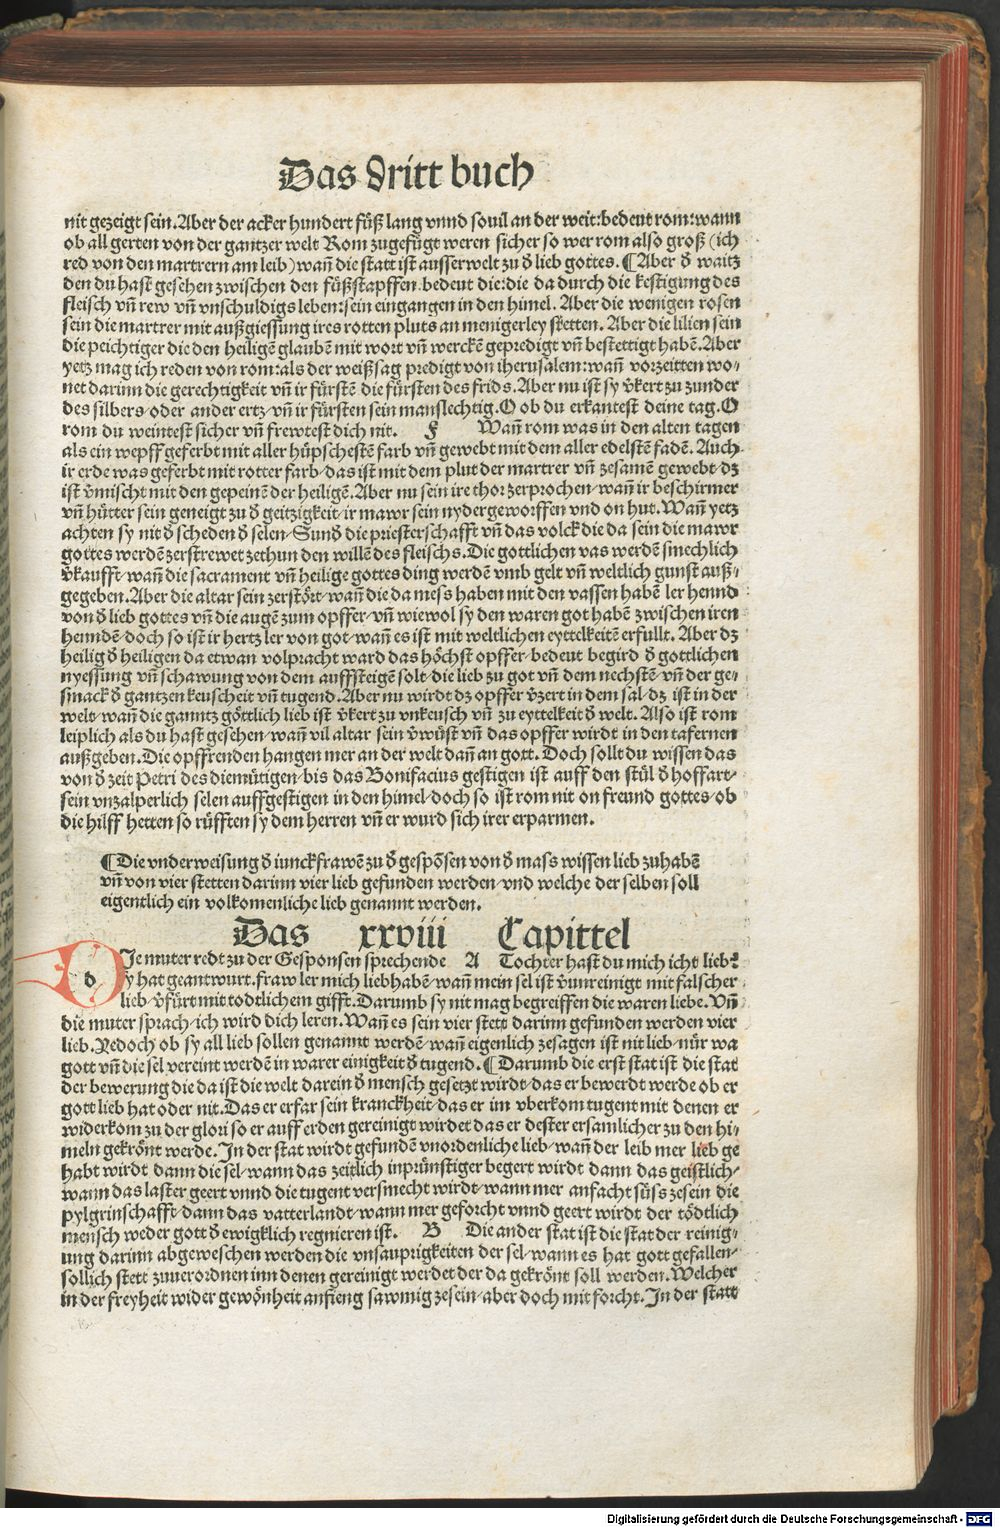 Das dritt buch
nit gezeigt sein. Aber der acker hundert füß lang vnnd souil an der weit: bedeut rom: wann
ob all gerten von der gantzer welt Rom zugefügt weren sicher so wer rom also groß (ich
red von den martrern am leib) wañ die statt ist ausserwelt zu ð lieb gottes. ¶ Aber ð waitz
den du hast gesehen zwischen den füßstapffen. bedeut die: die da durch die kestigung des
fleisch vñ rew vñ vnschuldigs leben: sein eingangen in den himel. Aber die wenigen rosen
sein die martrer mit außgiessung ires rotten pluts an menigerley stetten. Aber die lilien sein
die peichtiger die den heiligē glaubē mit wort vñ werckē gepredigt vñ bestettigt habē. Aber
yetz mag ich reden von rom: als der weißsag predigt von iherusalem: wañ vorzeitten wo⸗
net darinn die gerechtigkeit vñ ir fürstē die fürsten des frids. Aber nu ist sy v̄kert zu zunder
des silbers/ oder ander ertz/ vñ ir fürsten sein manslechtig. O ob du erkantest deine tag. O
rom du weintest sicher vñ frewtest dich nit. F Wañ rom was in den alten tagen
als ein wepff geferbt mit aller hüpschestē farb vñ gewebt mit dem aller edelstē fadē. Auch
ir erde was geferbt mit rotter farb/ das ist mit dem plut der martrer vñ zesamē gewebt/ dz
ist v̄mischt mit den gepeinē der heiligē. Aber nu sein ire thor zerprochen/ wañ ir beschirmer
vñ hütter sein geneigt zu ð geitzigkeit/ ir mawr sein nydergeworffen vnd on hut. Wañ yetz
achten sy nit ð scheden ð selen/ Sunð die priesterschafft vñ das volck die da sein die mawr
gottes werdē zerstrewet zethun den willē des fleischs. Die gottlichen vas werdē smechlich
v̄kaufft/ wañ die sacrament vñ heilige gottes ding werdē vmb gelt vñ weltlich gunst auß⸗
gegeben. Aber die altar sein zerstört/ wañ die da mess haben mit den vassen habē ler hennd
von ð lieb gottes vñ die augē zum opffer/ vñ wiewol sy den waren got habē zwischen iren
henndē/ doch so ist ir hertz ler von got/ wañ es ist mit weltlichen eyttelkeitē erfullt. Aber dz
heilig ð heiligen da etwan volpracht ward das höchst opffer/ bedeut begird ð gottlichen
nyessung vñ schawung von dem auffsteigē solt/ die lieb zu got vñ dem nechstē vñ der ge⸗
smack ð gantzen keuscheit vñ tugend. Aber nu wirdt dz opffer v̄zert in dem sal/ dz ist in der
welt/ wañ die ganntz göttlich lieb ist v̄kert zu vnkeusch vñ zu eyttelkeit ð welt. Also ist rom
leiplich als du hast gesehen/ wañ vil altar sein v̄wüst vñ das opffer wirdt in den tafernen
außgeben. Die opffrenden hangen mer an der welt dañ an gott. Doch sollt du wissen das
von ð zeit Petri des diemütigen/ bis das Bonifacius gestigen ist auff den stül ð hoffart/
sein vnzalperlich selen auffgestigen in den himel/ doch so ist rom nit on freund gottes/ ob
die hilff hetten so rüfften sy dem herren vñ er wurd sich irer erparmen.
¶ Die vnderweisung ð iunckfrawē zu ð gespōsen von ð mass wissen lieb zuhabē
vñ von vier stetten darinn vier lieb gefunden werden/ vnd welche der selben soll
eigentlich ein volkomenliche lieb genannt werden.
Das xxviii Capittel
d Ie muter redt zu der Gesponsen sprechende A Tochter hast du mich icht lieb?
sy hat geantwurt. fraw ler mich liebhabē/ wañ mein sel ist v̄unreinigt mit falscher
lieb/ v̄fürt mit todtlichem gifft. Darumb sy nit mag begreiffen die waren liebe. Vñ
die muter sprach/ ich wird dich leren. Wañ es sein vier stett darinn gefunden werden vier
lieb. Yedoch ob sy all lieb sollen genannt werdē/ wañ eigenlich zesagen ist nit lieb/ nür wa
gott vñ die sel vereint werdē in warer einigkeit ð tugend. ¶ Darumb die erst stat ist die stat
der bewerung die da ist die welt darein ð mensch gesetzt wirdt/ das er bewerdt werde ob er
gott lieb hat oder nit. Das er erfar sein kranckheit/ das er im vberkom tugent mit denen er
widerkom zu der glori so er auff erden gereinigt wirdet das er dester ersamlicher zu den hi⸗
meln gekrönt werde. In der stat wirdt gefundē vnordenliche lieb/ wañ der leib mer lieb ge
habt wirdt dann die sel/ wann das zeitlich inprünstiger begert wirdt dann das geistlich/
wann das laster geert vnnd die tugent versmecht wirdt/ wann mer anfacht süss zesein die
pylgrinschafft/ dann das vatterlandt/ wann mer geforcht vnnd geert wirdt der tödtlich
mensch weder gott ð ewigklich regnieren ist. B Die ander stat ist die stat der reinig⸗
ung darinn abgeweschen werden die vnsauprigkeiten der sel/ wann es hat gott gefallen/
sollich stett zuuerordnen inn denen gereinigt werdet der da gekrönt soll werden. Welcher
in der freyheit wider gewönheit anfieng sawmig zesein/ aber doch mit forcht. In der statt
Digitalisierung gefördert durch die Deutsche Forschungsgemeinschaft - DFG